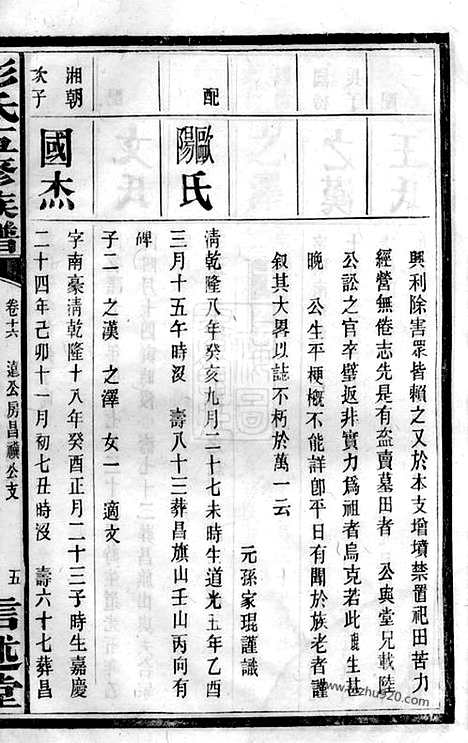 興利除害眾皆賴之又於本支增墳禁置祀田苦力
經營無倦志先是有盜賣墓田者 公與堂兄載陸
公訟之官卒璧返非實力為祖者烏克若此鹿生甚
晚 公生平梗概不能詳卽平日有關於族老者謹
叙其大畧以誌不朽於萬一云
元孫家琨謹識
配
歐陽氏
清乾隆八年癸亥九月二十七未時生道光五年乙酉
三月十五午時沒 壽八十三葬昌旗山壬山丙向有
碑
子二 之漢 之澤 女一 適文
湘朝次子
國杰
字南豪清乾隆十八年癸酉正月二十三子時生嘉慶
二十四年己卯十一月初七丑時沒 壽六十七葬昌
彭氏五修族譜
卷十六 遠公房昌禎公支
五
信述堂
www.dizhu920.com